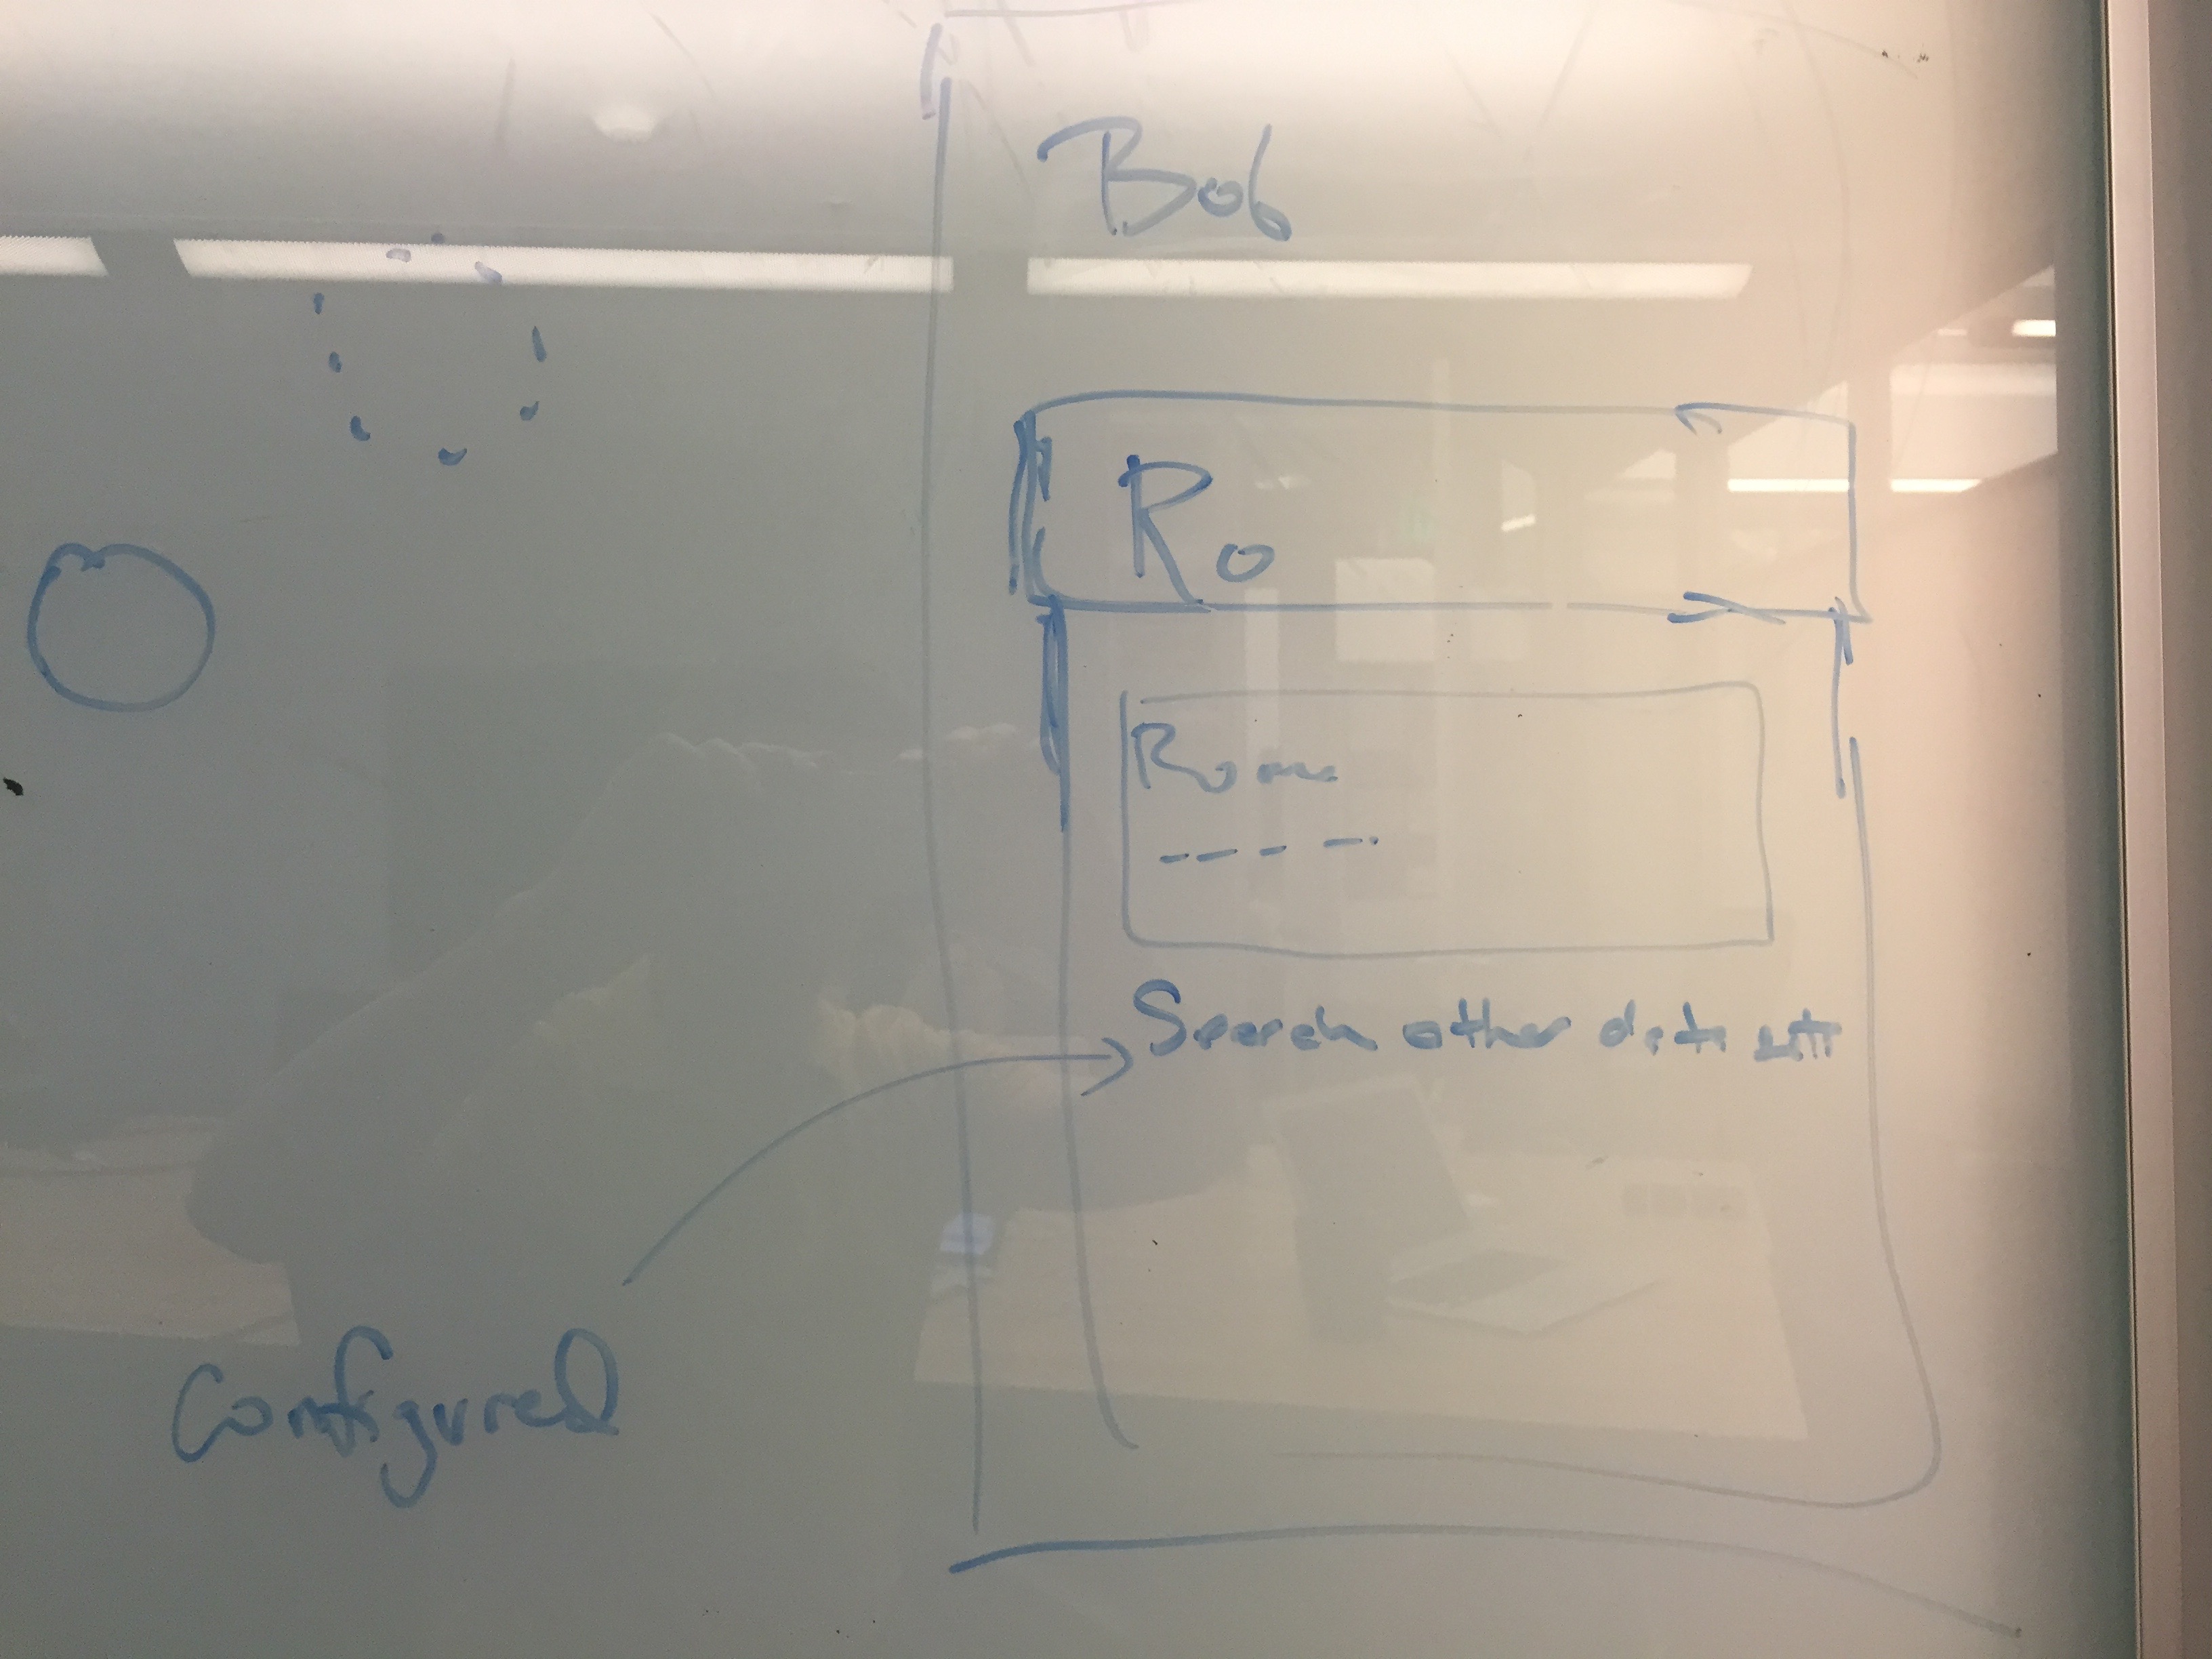 Bob
Ro
Rome
Search other data sets
Configured